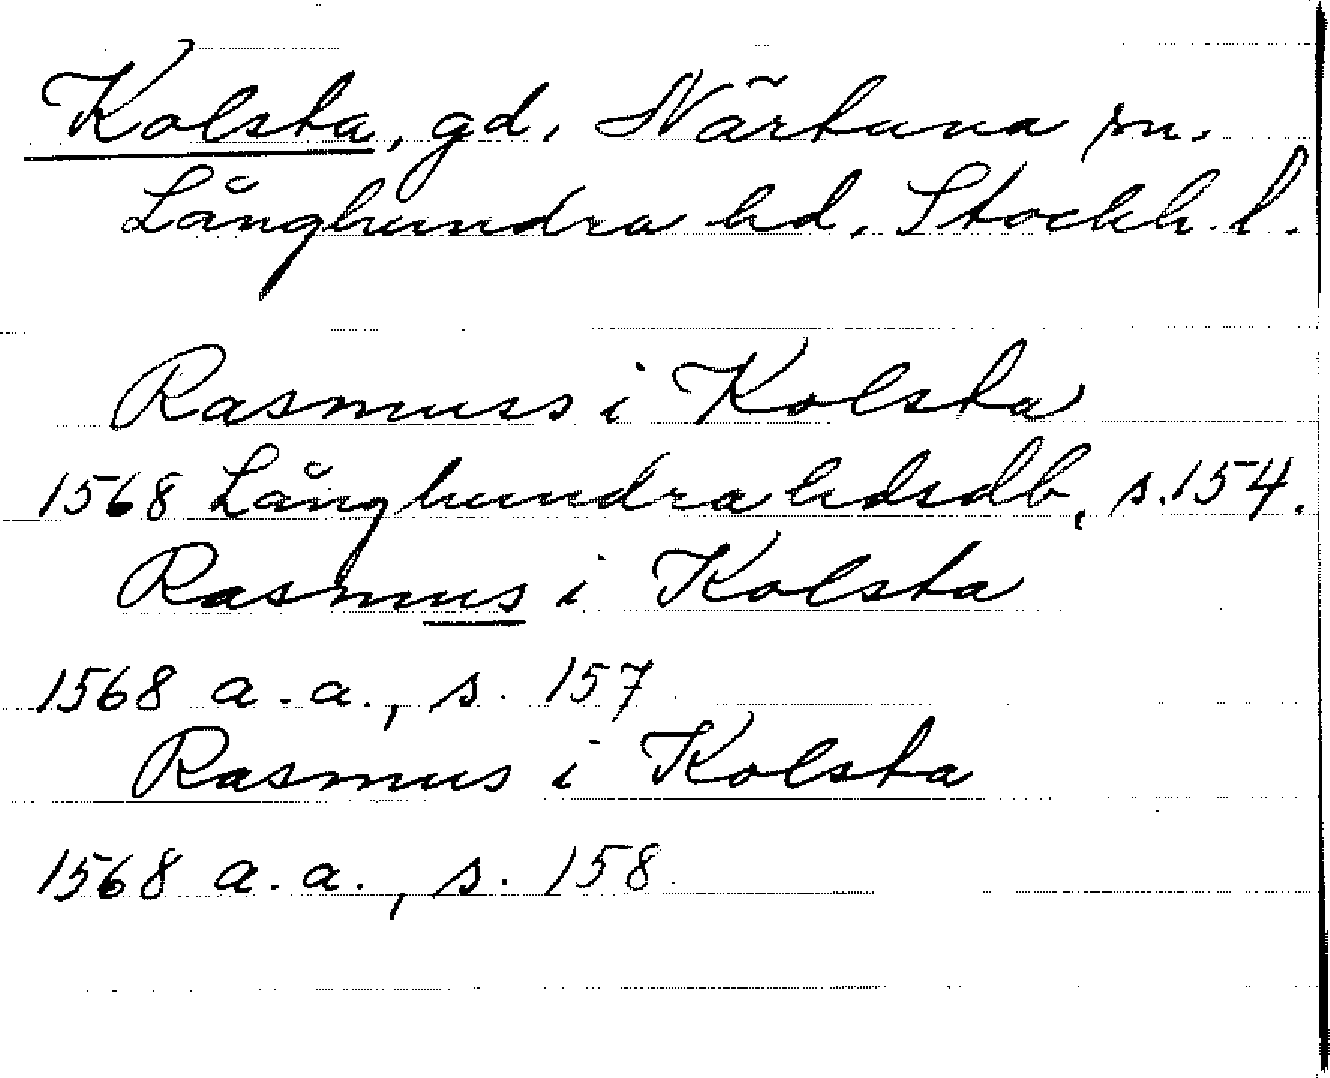 Kolsta, gd, Närtuna sn.
Långhundra hd, Stockh. l.
Rasmuss i Kolsta
1568 Långhundra hdsdb, s. 154.
Rasmus i Kolsta
1568 a.a., s. 157
Rasmus i Kolsta
1568 a.a., s. 158